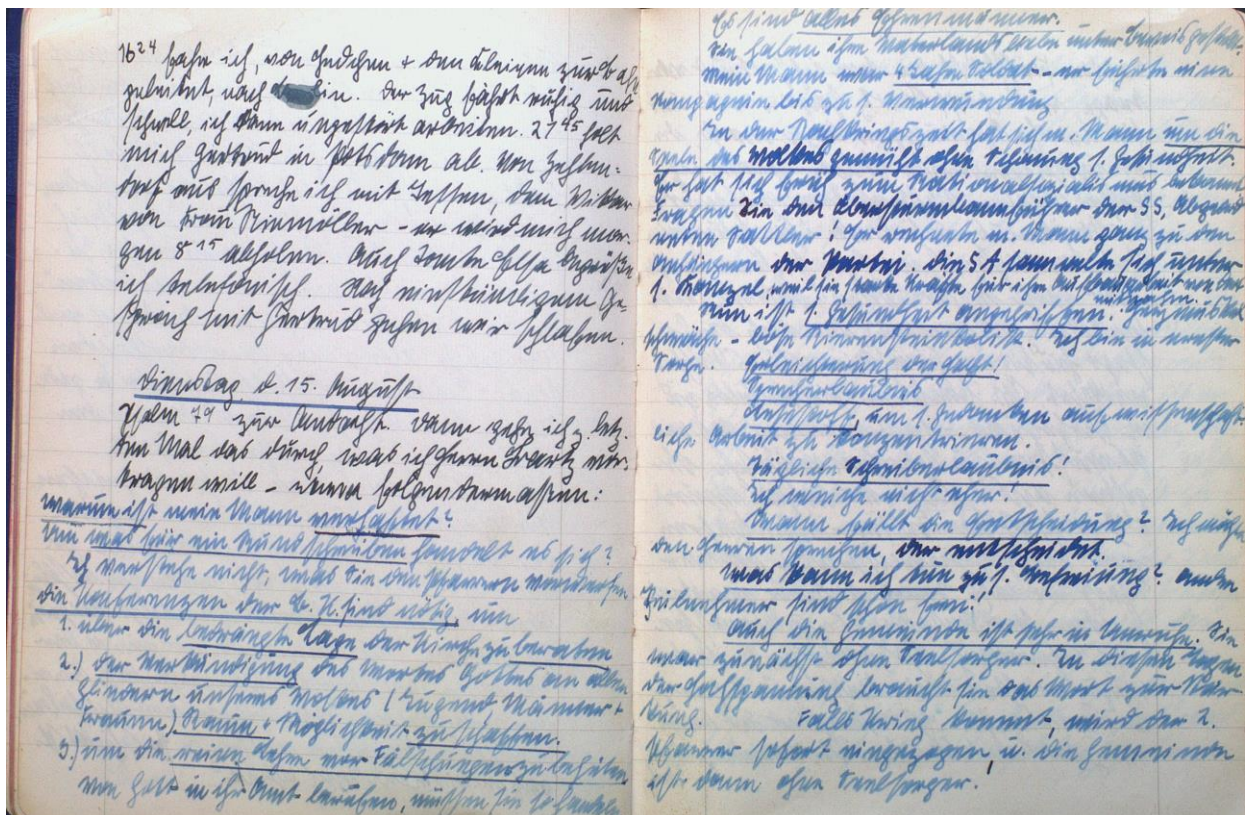 16²⁴ fahre ich, von Gedchen + den Kleinen zur Bahn
geleitet, nach Berlin. Der Zug fährt ruhig und
schnell, ich kann ungestört arbeiten. 21⁴⁵ holt
mich Gertrud in Potsdam ab. Von Zehlen-
dorf aus spreche ich mit Jessen, dem Vikar
von Frau Niemöller – er wird mich mor-
gen 8¹⁵ abholen. Auch Tante Elsa begrüße
ich telefonisch. Nach einstündigem Ge-
spräch mit Gertrud gehen wir schlafen.
Dienstag, d. 15. August
Psalm 79 zur Andacht. Dann gehe ich z. letz-
ten Mal das durch, was ich Herrn vor-
tragen will – etwa folgendermassen:
Warum ist mein Mann verhaftet?
Um was für ein Rundschreiben handelt es sich?
Ich verstehe nicht, was Sie den Pfarrern vorwerfen
Die Konferenzen der B. K. sind nötig, um
1. über die bedrängte Lage der Kirche zu beraten
2.) der Verkündigung des Wortes Gottes an allen
Gliedern unseres Volkes (Jugend Männer +
Frauen) Raum + Möglichkeit zu schaffen.
3.) um die reine Lehre vor Fälschungen zu behüten
von Gott in ihr Amt berufen, müssen sie so handeln
Es sind alles Ehrenmänner.
Sie haben ihre Vaterlandsliebe unter Beweis gestellt.
Mein Mann war 4 Jahre Soldat – er führte eine
Kompagnie bis zu s. Verwundung
In der Nachkriegszeit hat sich m. Mann um die
Seele des Volkes gemüht ohne Schonung s. Gesundheit.
Er hat sich früh zum Nationalsozialismus bekannt
Fragen Sie den Obersturmbannführer der SS, Abgeord-
neten Sattler! Er rechnete m. Mann ganz zu den
Anhängern der Partei. Die SA sammelte sich unter
s. Kanzel, weil sie starke Kräfte für ihre Aufbauarbeit von dort
mitnahm.
Nun ist s. Gesundheit angegriffen. Herzmuskel-
schwäche – böse Nierensteinkolik. Ich bin in ernster
Sorge. Erleichterung der Haft!
Sprecherlaubnis
Lesestoff, um s. Gedanken auf wissenschaft-
liche Arbeit zu konzentrieren.
Tägliche Schreiberlaubnis!
Ich weiche nicht eher.
Wann fällt die Entscheidung? Ich möchte
den Herren sprechen, der entscheidet.
Was kann ich tun zu s. Befreiung? andere
Teilnehmer sind schon frei!
Auch die Gemeinde ist sehr in Unruhe. Sie
war zunächst ohne Seelsorger. In diesen Tagen
der Hochspannung braucht sie das Wort zur Stär-
kung. Falls Krieg kommt, wird der 2.
Pfarrer sofort eingezogen u. die Gemeinde
ist dann ohne Seelsorger.